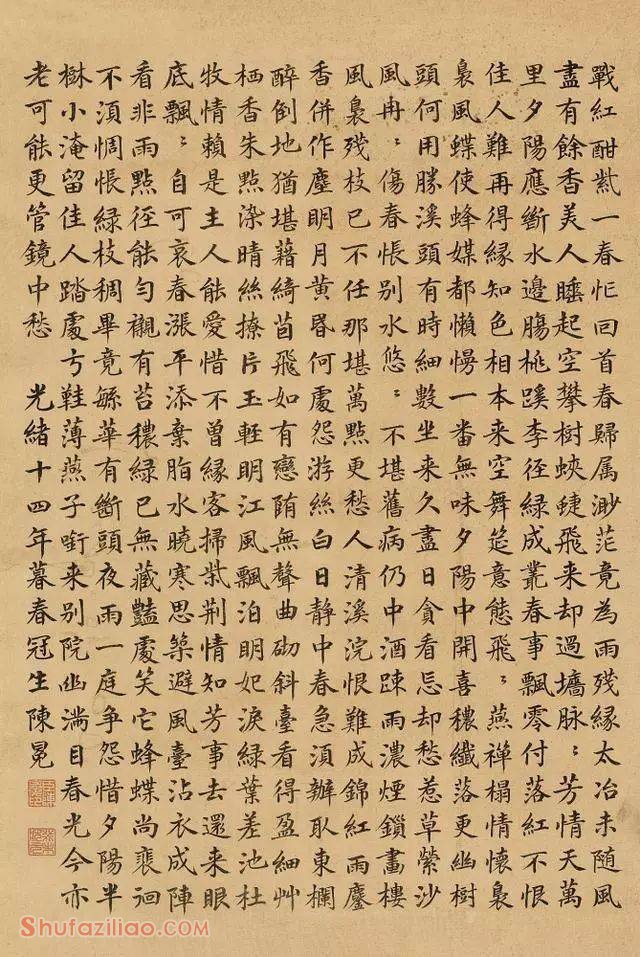 戰紅酣紫一春忙回首春歸属渺茫竟為雨殘緣太冶未随風
盡有餘香美人睡起空攀樹蛺蜨飛来却過墻脉〻芳情天萬
里夕陽應斷水邊腸桃蹊李徑緑成叢春事飄零付落紅不恨
佳人難再得緣知色相本来空舞筵意態飛〻燕禪榻情懷裊
裊風蝶使蜂媒都懶慢一番無味夕陽中開喜穠纖落更幽樹
頭何用勝溪頭有時細數坐来久盡日貪看忘却愁惹草縈沙
風冉〻傷春悵別水悠〻不堪舊病仍中酒踈雨濃煙鎖畫樓
風裊殘枝已不任那堪萬點更愁人清溪浣恨難成錦紅雨鏖
香併作塵明月黄昏何處怨游絲白日静中春急湏辦取東欄
醉倒地猶堪藉綺茵飛如有戀陏無聲曲砌斜臺看得盈細艸
栖香朱點染晴絲撩片玉輕明江風飄泊明妃淚緑葉差池杜
牧情賴是主人能愛惜不曾緣客掃柴荆情知芳事去還来眼
底飄〻自可哀春漲平添棄脂水曉寒思築避風臺沾衣成陣
看非雨點徑能勻襯有苔穠緑已無藏豔處笑它蜂蝶尚裴徊
不湏惆悵緑枝稠畢竟緐華有斷頭夜雨一庭争怨惜夕陽半
樹小淹留佳人踏處弓鞋薄燕子啣来別院幽滿目春光今亦
老可能更管鏡中愁 光緒十四年暮春冠生陳冕
Shufaziliao.com